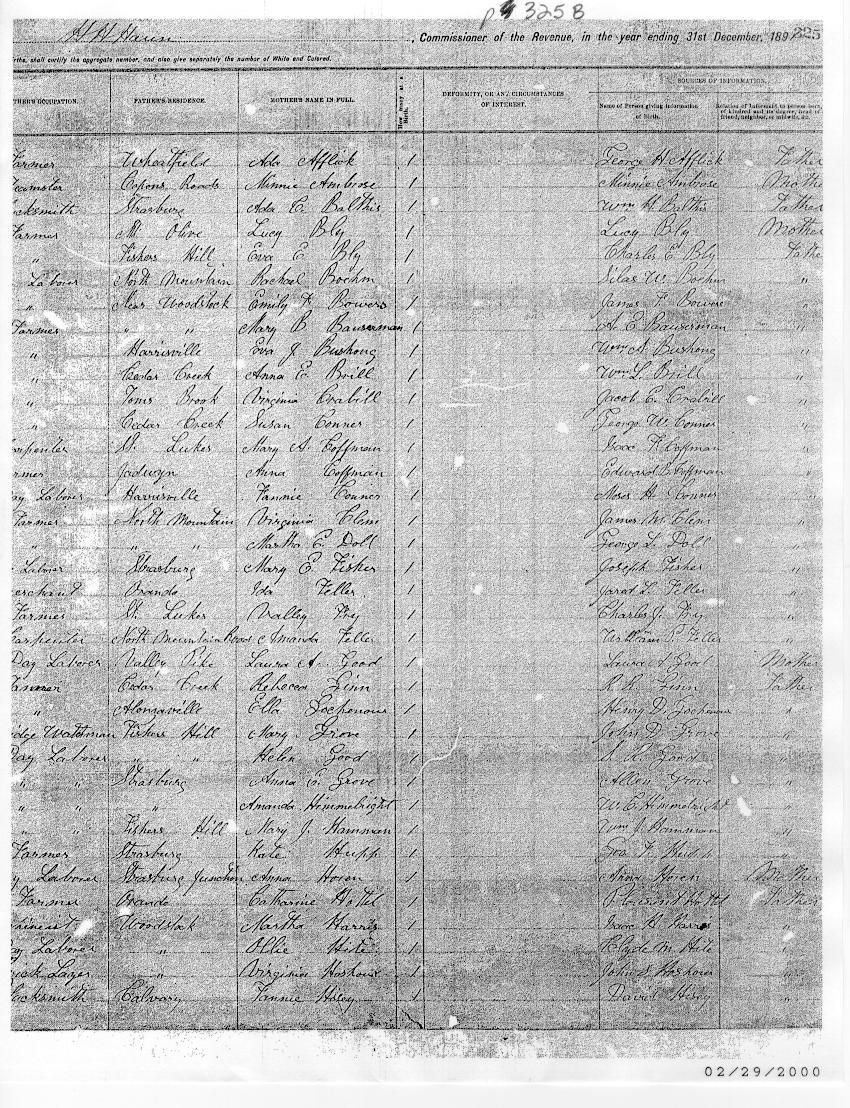 p 325B
H H Haun, Commissioner of the Revenue, in the year ending 31st December, 189 325
rths, shall certify the aggregate number, and also give separately the number of White and Colored.
SOURCES OF INFORMATION.
THER'S OCCUPATION. FATHER'S RESIDENCE. MOTHER'S NAME IN FULL. How many at a Birth. DEFORMITY, OR ANY CIRCUMSTANCES OF INTEREST. Name of Person giving Information of Birth. Relation of Informant to person born, of kindred and its degree, head of friend, neighbor, or midwife, &c.
Farmer Wheatfield Ada Afflick 1 George H Afflick Father
Teamster Capons Roads Minnie Ambrose 1 Minnie Ambrose Mothe
cksmith Strasburg Ada C. Balthis 1 Wm H Balthis Father
Farmer Mt Olive Lucy Bly 1 Lucy Bly Mother
" Fishers Hill Eva E Bly 1 Charles E Bly Fathe
Laborer North Mountain Rachael Boehm 1 Silas W. Boehm "
" Near Woodstock Emily F Bowers 1 James F Bowers "
Farmer " " Mary B Bauserman 1 A E Bauserman "
" Harrisville Eva J Bushong 1 Wm A Bushong "
" Cedar Creek Anna E Brill 1 Wm L. Brill "
" Toms Brook Virginia Crabill 1 Jacob C. Crabill "
" Cedar Creek Susan Conner 1 George W. Conner "
arpenter St. Lukes Mary A. Coffman 1 Isaac F Coffman "
rmer Jadwyn Anna Coffman 1 Edward B Coffman "
ay Laborer Harrisville Fannie Conner 1 Moses H. Conner "
Farmer North Mountain Virginia Clem 1 James M. Clem "
" " " Martha E. Doll 1 George L. Doll "
Laborer Strasburg Mary E Fisher 1 Joseph Fisher "
erchant Orando Ida Feller 1 Jarad L. Feller "
Farmer St. Lukes Valley Fry 1 Charles J. Fry "
Carpenter North Mountain Road Amanda Feller 1 William P. Feller "
Day Laborer Valley Pike Laura A. Good 1 Laura A Good Mother
Farmer Cedar Creek Rebecca Ginn 1 R R Ginn Father
" Alonzaville Ella Gochenour 1 Henry D. Gochenour "
idge Watchman Fishers Hill Mary Grove 1 John D. Grove "
Day Laborer " " Helen Good 1 Good "
" " Strasburg Anna E. Grove 1 Allen Grove "
" " " Amanda Himmelright 1 W. E. Himmelright "
" " Fishers Hill Mary J. Hamman 1 Wm J. Hamman "
Farmer Strasburg Kate Hupp 1 Hupp "
y Laborer Strasburg Junction Anna Hoven 1 Anna Hoven Mother
Farmer Orando Catharine Hottel 1 Hottel Father
Woodstock Martha Harris 1 Isaac H Harris "
ay Laborer " Ollie Hite 1 Clyde M. Hite "
rick Layer " Virginia Hoshour 1 John S. Hoshour "
lacksmith Calvary Fannie Hisey 1 David Hisey "
02/29/2000